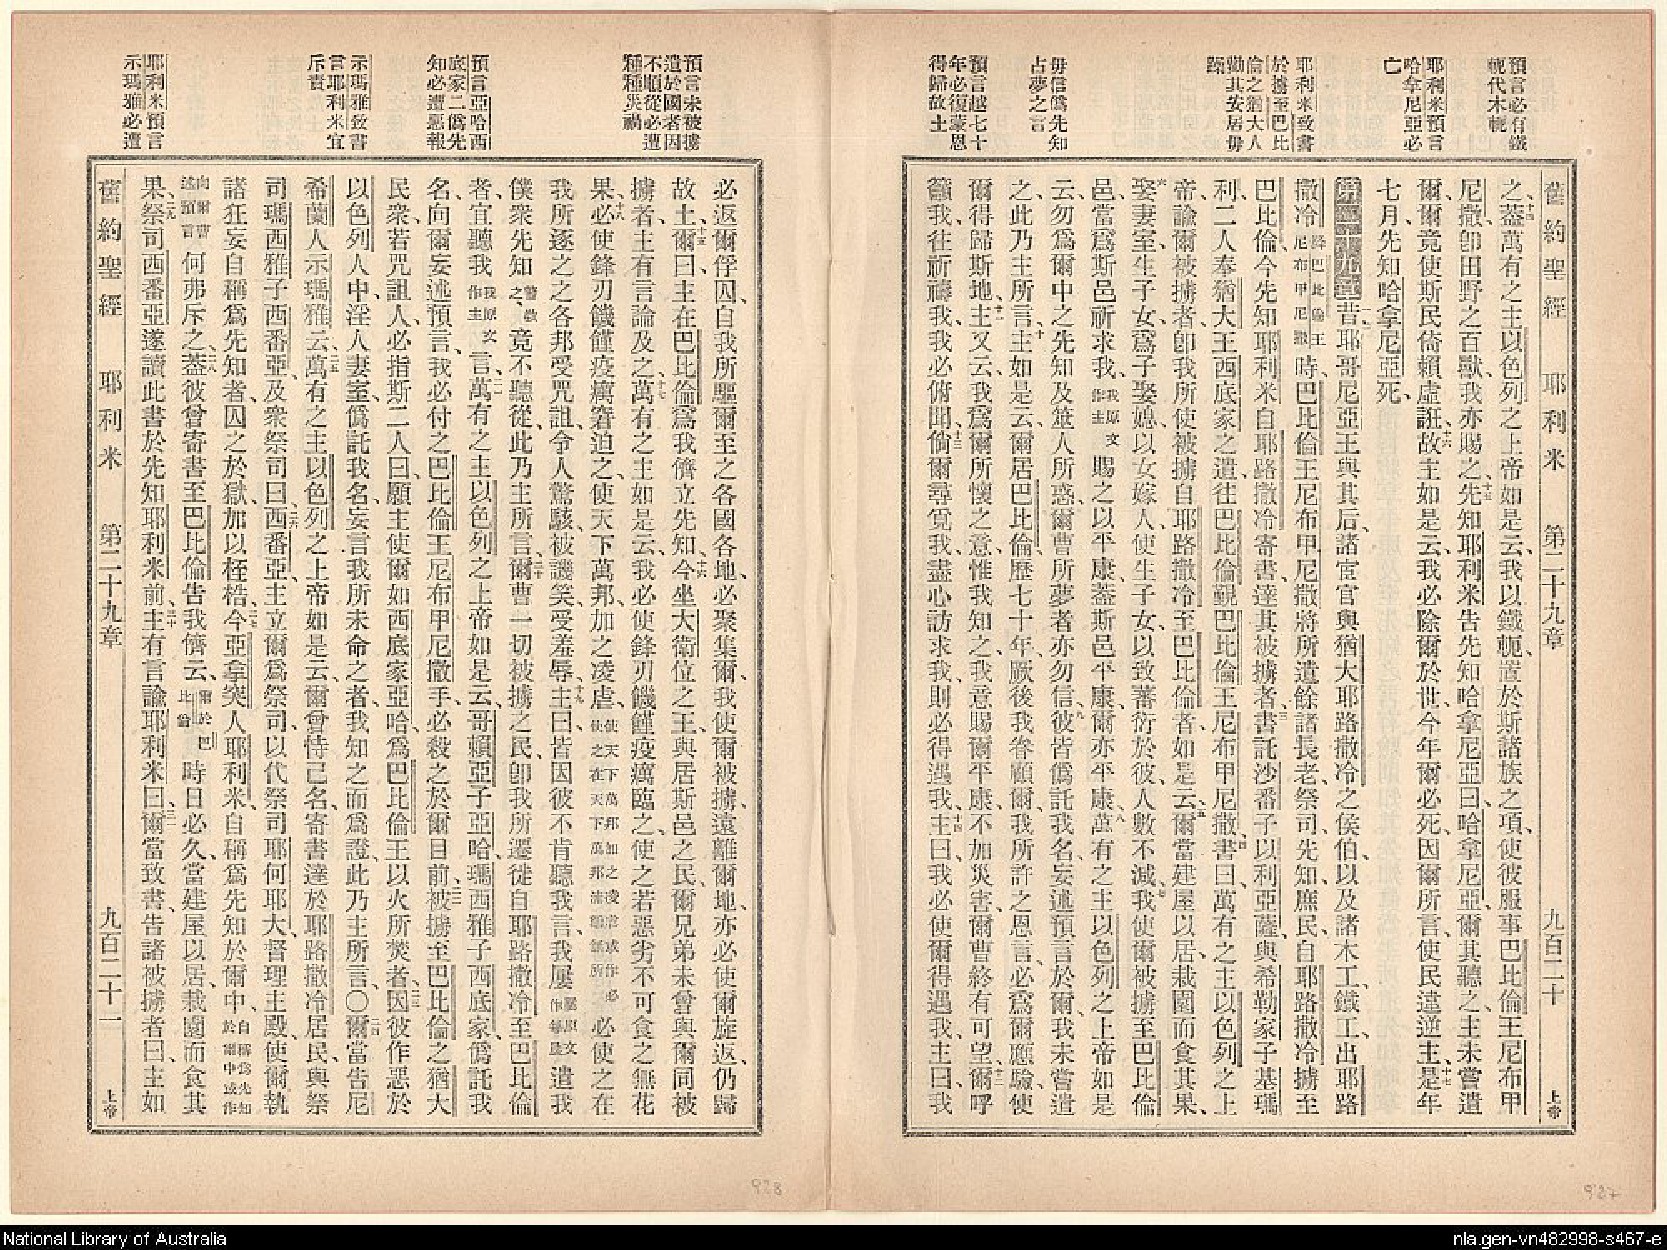 預言必有鐵
軛代木軛
耶利米預言
哈拿尼亞必
亡
耶利米致書
於擄至巴比
倫之猶大人
勸其安居毋
躁
毋信僞先知
占夢之言
預言越七十
年必復蒙恩
得歸故土
舊約聖經 耶利米 第二十九章 九百二十 上帝
之、十四蓋萬有之主以色列之上帝如是云、我以鐵軛置於斯諸族之項、使彼服事巴比倫王尼布甲
尼撒、卽田野之百獸、我亦賜之、十五先知耶利米告先知哈拿尼亞曰、哈拿尼亞、爾其聽之、主未嘗遣
爾、爾竟使斯民倚賴虛誑、十六故主如是云、我必除爾於世、今年爾必死、因爾所言、使民違逆主、十七是年
七月、先知哈拿尼亞死、
第二十九章 一昔耶哥尼亞王與其后、諸宦官、與猶大耶路撒冷之侯伯、以及諸木工、鐵工、出耶路
撒冷、尼布甲尼撒將巴比倫王時、巴比倫王尼布甲尼撒將所遺餘諸長老、祭司、先知、庶民、自耶路撒冷擄至
巴比倫、今先知耶利米自耶路撒冷寄書、達其被擄者、三書託沙番子以利亞薩、與希勒家子基瑪
利、二人奉猶大王西底家之遣、往巴比倫覲巴比倫王尼布甲尼撒、四書曰、萬有之主以色列之上
帝、諭爾被擄者、卽我所使被擄自耶路撒冷至巴比倫者、如是云、五爾當建屋以居、栽園而食其果、
六娶妻室、生子女、爲子娶媳、以女嫁人、使生子女、以致蕃衍於彼、人數不減、七我使爾被擄至巴比倫
邑、當爲斯邑祈求我、我原文作主賜之以平康、蓋斯邑平康、爾亦平康、八萬有之主以色列之上帝如是
云、勿爲爾中之先知及筮人所惑、爾曹所夢者、亦勿信、九彼皆僞託我名、妄述預言於爾、我未嘗遣
之、此乃主所言、十主如是云、爾居巴比倫歷七十年、厥後我眷顧爾、我所許之恩言、必爲爾應驗、使
爾得歸斯地、十一主又云、我爲爾所懷之意、惟我知之、我意賜爾平康、不加災害、爾曹終有可望、十二爾呼
籲我、往祈禱我、我必俯聞、十三倘爾尋覓我、盡心訪求我、則必得遇我、十四主曰、我必使爾得遇我、主曰、我
預言未被擄
遺於國者因
不順從必遭
種種災禍
預言亞哈西
底家二僞先
知必遭惡報
示瑪雅致書
言耶利米宜
斥責
耶利米預言
示瑪雅必遭
必返爾俘囚、自我所驅爾至之各國各地、必聚集爾、我使爾被擄、遠離爾地、亦必使爾旋返、仍歸
故土、十五爾曰、主在巴比倫爲我儕立先知、十六今坐大衛位之王、與居斯邑之民、爾兄弟未曾與爾同被
擄者、主有言論及之、十七萬有之主如是云、我必使鋒刃饑饉疫癘臨之、使之若惡劣不可食之無花
果、十八必使鋒刃饑饉疫癘窘迫之、使天下萬邦加之凌虐、必使之在
我所逐之之各邦、受咒詛、令人驚駭、被譏笑、受羞辱、十九主曰、皆因彼不肯聽我言、我屢遣我
僕衆先知警敎之、竟不聽從、此乃主所言、二十爾曹一切被擄之民、卽我所遷徙自耶路撒冷至巴比倫
者、宜聽我我原文作主言、二一萬有之主以色列之上帝如是云、哥賴亞子亞哈、瑪西雅子西底家、僞託我
名、向爾妄述預言、我必付之巴比倫王尼布甲尼撒手、必殺之於爾目前、二二被擄至巴比倫之猶大
民衆、若咒詛人、必指斯二人曰、願主使爾如西底家亞哈、爲巴比倫王以火所焚者、二三因彼作惡於
以色列人中、淫人妻室、僞託我名、妄言我所未命之者、我知之而爲證、此乃主所言、〇二四爾當告尼
希蘭人示瑪雅云、二五萬有之主以色列之上帝如是云、爾曾恃己名、寄書達於耶路撒冷居民、與祭
司瑪西雅子西番亞、及衆祭司曰、二六西番亞、主立爾爲祭司、以代祭司耶何耶大、督理主殿、使爾執
諸狂妄自稱爲先知者、囚之於獄、加以桎梏、二七今亞拿突人耶利米、自稱爲先知於爾中、自稱爲先知於爾中或作向爾曹述預言
何弗斥之、二八蓋彼曾寄書至巴比倫告我儕云、爾於巴比倫時日必久、當建屋以居、栽園而食其
果、二九祭司西番亞遂讀此書於先知耶利米前、三十主有言諭耶利米曰、三一爾當致書告諸被擄者曰、主如
舊約聖經 耶利米 第二十九章 九百二十一 上帝
928
927
National Library of Australia
nla.gen-vn482998-s467-e